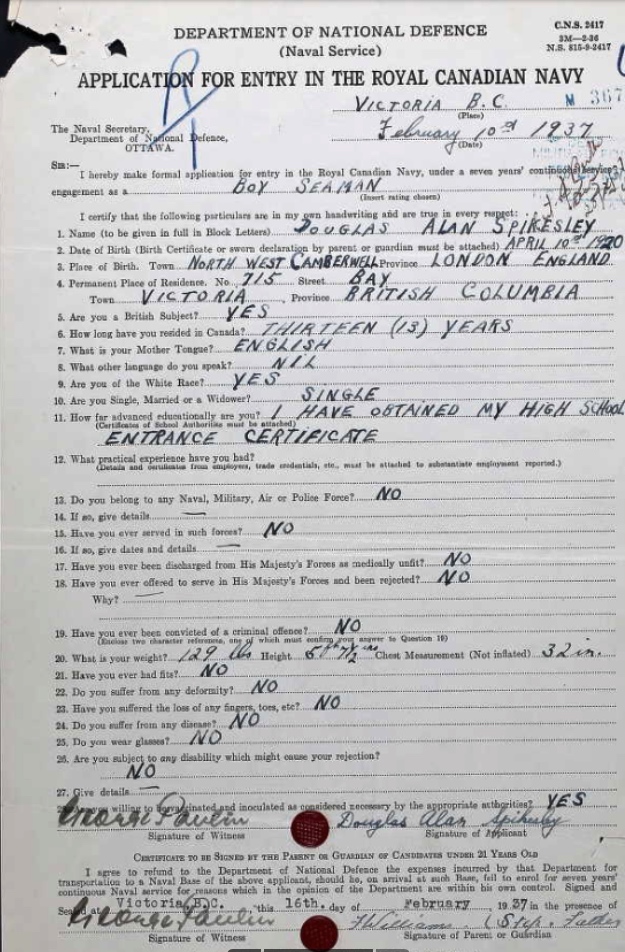 DEPARTMENT OF NATIONAL DEFENCE
(Naval Service)
C.N.S. 2417
3M—2-36
N.S. 815-9-2417
APPLICATION FOR ENTRY IN THE ROYAL CANADIAN NAVY
VICTORIA B.C.
(Place)
M 367
The Naval Secretary,
Department of National Defence,
OTTAWA.
February 10th 1937
(Date)
SIR:—
I hereby make formal application for entry in the Royal Canadian Navy, under a seven years' continuous service
engagement as a BOY SEAMAN
(Insert rating chosen)
I certify that the following particulars are in my own handwriting and are true in every respect:
1. Name (to be given in full in Block Letters) DOUGLAS ALAN SPIKESLEY
2. Date of Birth (Birth Certificate or sworn declaration by parent or guardian must be attached) APRIL 10th 1920
3. Place of Birth. Town NORTH WEST CAMBERWELL Province LONDON ENGLAND
4. Permanent Place of Residence. No. 715 Street BAY
Town VICTORIA, Province BRITISH COLUMBIA
5. Are you a British Subject? YES
6. How long have you resided in Canada? THIRTEEN (13) YEARS
7. What is your Mother Tongue? ENGLISH
8. What other language do you speak? NIL
9. Are you of the White Race? YES
10. Are you Single, Married or a Widower? SINGLE
11. How far advanced educationally are you? I HAVE OBTAINED MY HIGH SCHOOL
(Certificates of School Authorities must be attached)
ENTRANCE CERTIFICATE
12. What practical experience have you had?
(Details and certificates from employers, trade credentials, etc., must be attached to substantiate employment reported.)
13. Do you belong to any Naval, Military, Air or Police Force? NO
14. If so, give details —
15. Have you ever served in such forces? NO
16. If so, give dates and details —
17. Have you ever been discharged from His Majesty's Forces as medically unfit? NO
18. Have you ever offered to serve in His Majesty's Forces and been rejected? NO
Why? —
19. Have you ever been convicted of a criminal offence? NO
(Enclose two character references, one of which must confirm your answer to Question 19)
20. What is your weight? 129 lbs Height Chest Measurement (Not inflated) 32 in.
21. Have you ever had fits? NO
22. Do you suffer from any deformity? NO
23. Have you suffered the loss of any fingers, toes, etc? NO
24. Do you suffer from any disease? NO
25. Do you wear glasses? NO
26. Are you subject to any disability which might cause your rejection?
NO
27. Give details —
you willing to be vaccinated and inoculated as considered necessary by the appropriate authorities? YES
George Paulin Douglas Alan Spikesley
Signature of Witness Signature of Applicant
CERTIFICATE TO BE SIGNED BY THE PARENT OR GUARDIAN OF CANDIDATES UNDER 21 YEARS OLD
I agree to refund to the Department of National Defence the expenses incurred by that Department for
transportation to a Naval Base of the above applicant, should he, on arrival at such Base, fail to enrol for seven years'
continuous Naval service for reasons which in the opinion of the Department are within his own control. Signed and
Sealed at Victoria B.C. this 16th. day of February 1937 in the presence of
George Paulin F Williams (Step. Father
Signature of Witness Signature of Parent or Guardian